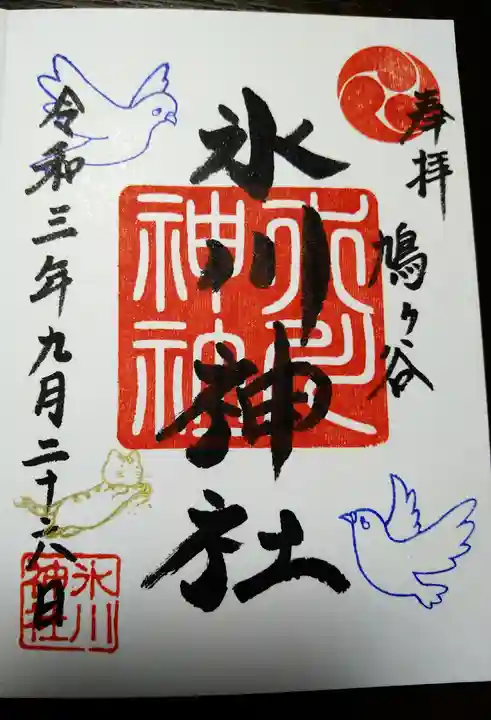 奉拝
鳩ヶ谷
氷川神社
令和三年九月二十六日
氷川
神社